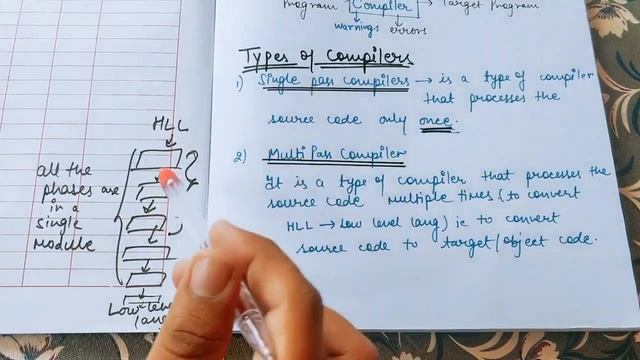 Program Compiler → Target Program
warnings errors
Types of Compilers
1) Single pass compilers → is a type of compiler
that processes the
source code only once.
2) Multi Pass Compiler
It is a type of compiler that processes the
source code multiple times (to convert
HLL → Low level lang) ie to convert
source code to target/object code.
HLL
all the
phases are
in a
single
Module
Low level